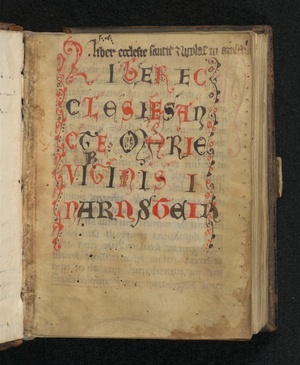 Liber ecclesie sancte
LIBER EC
CLESIE SAN
CTE MARIE
VIRGINIS I
NARNSTEIN